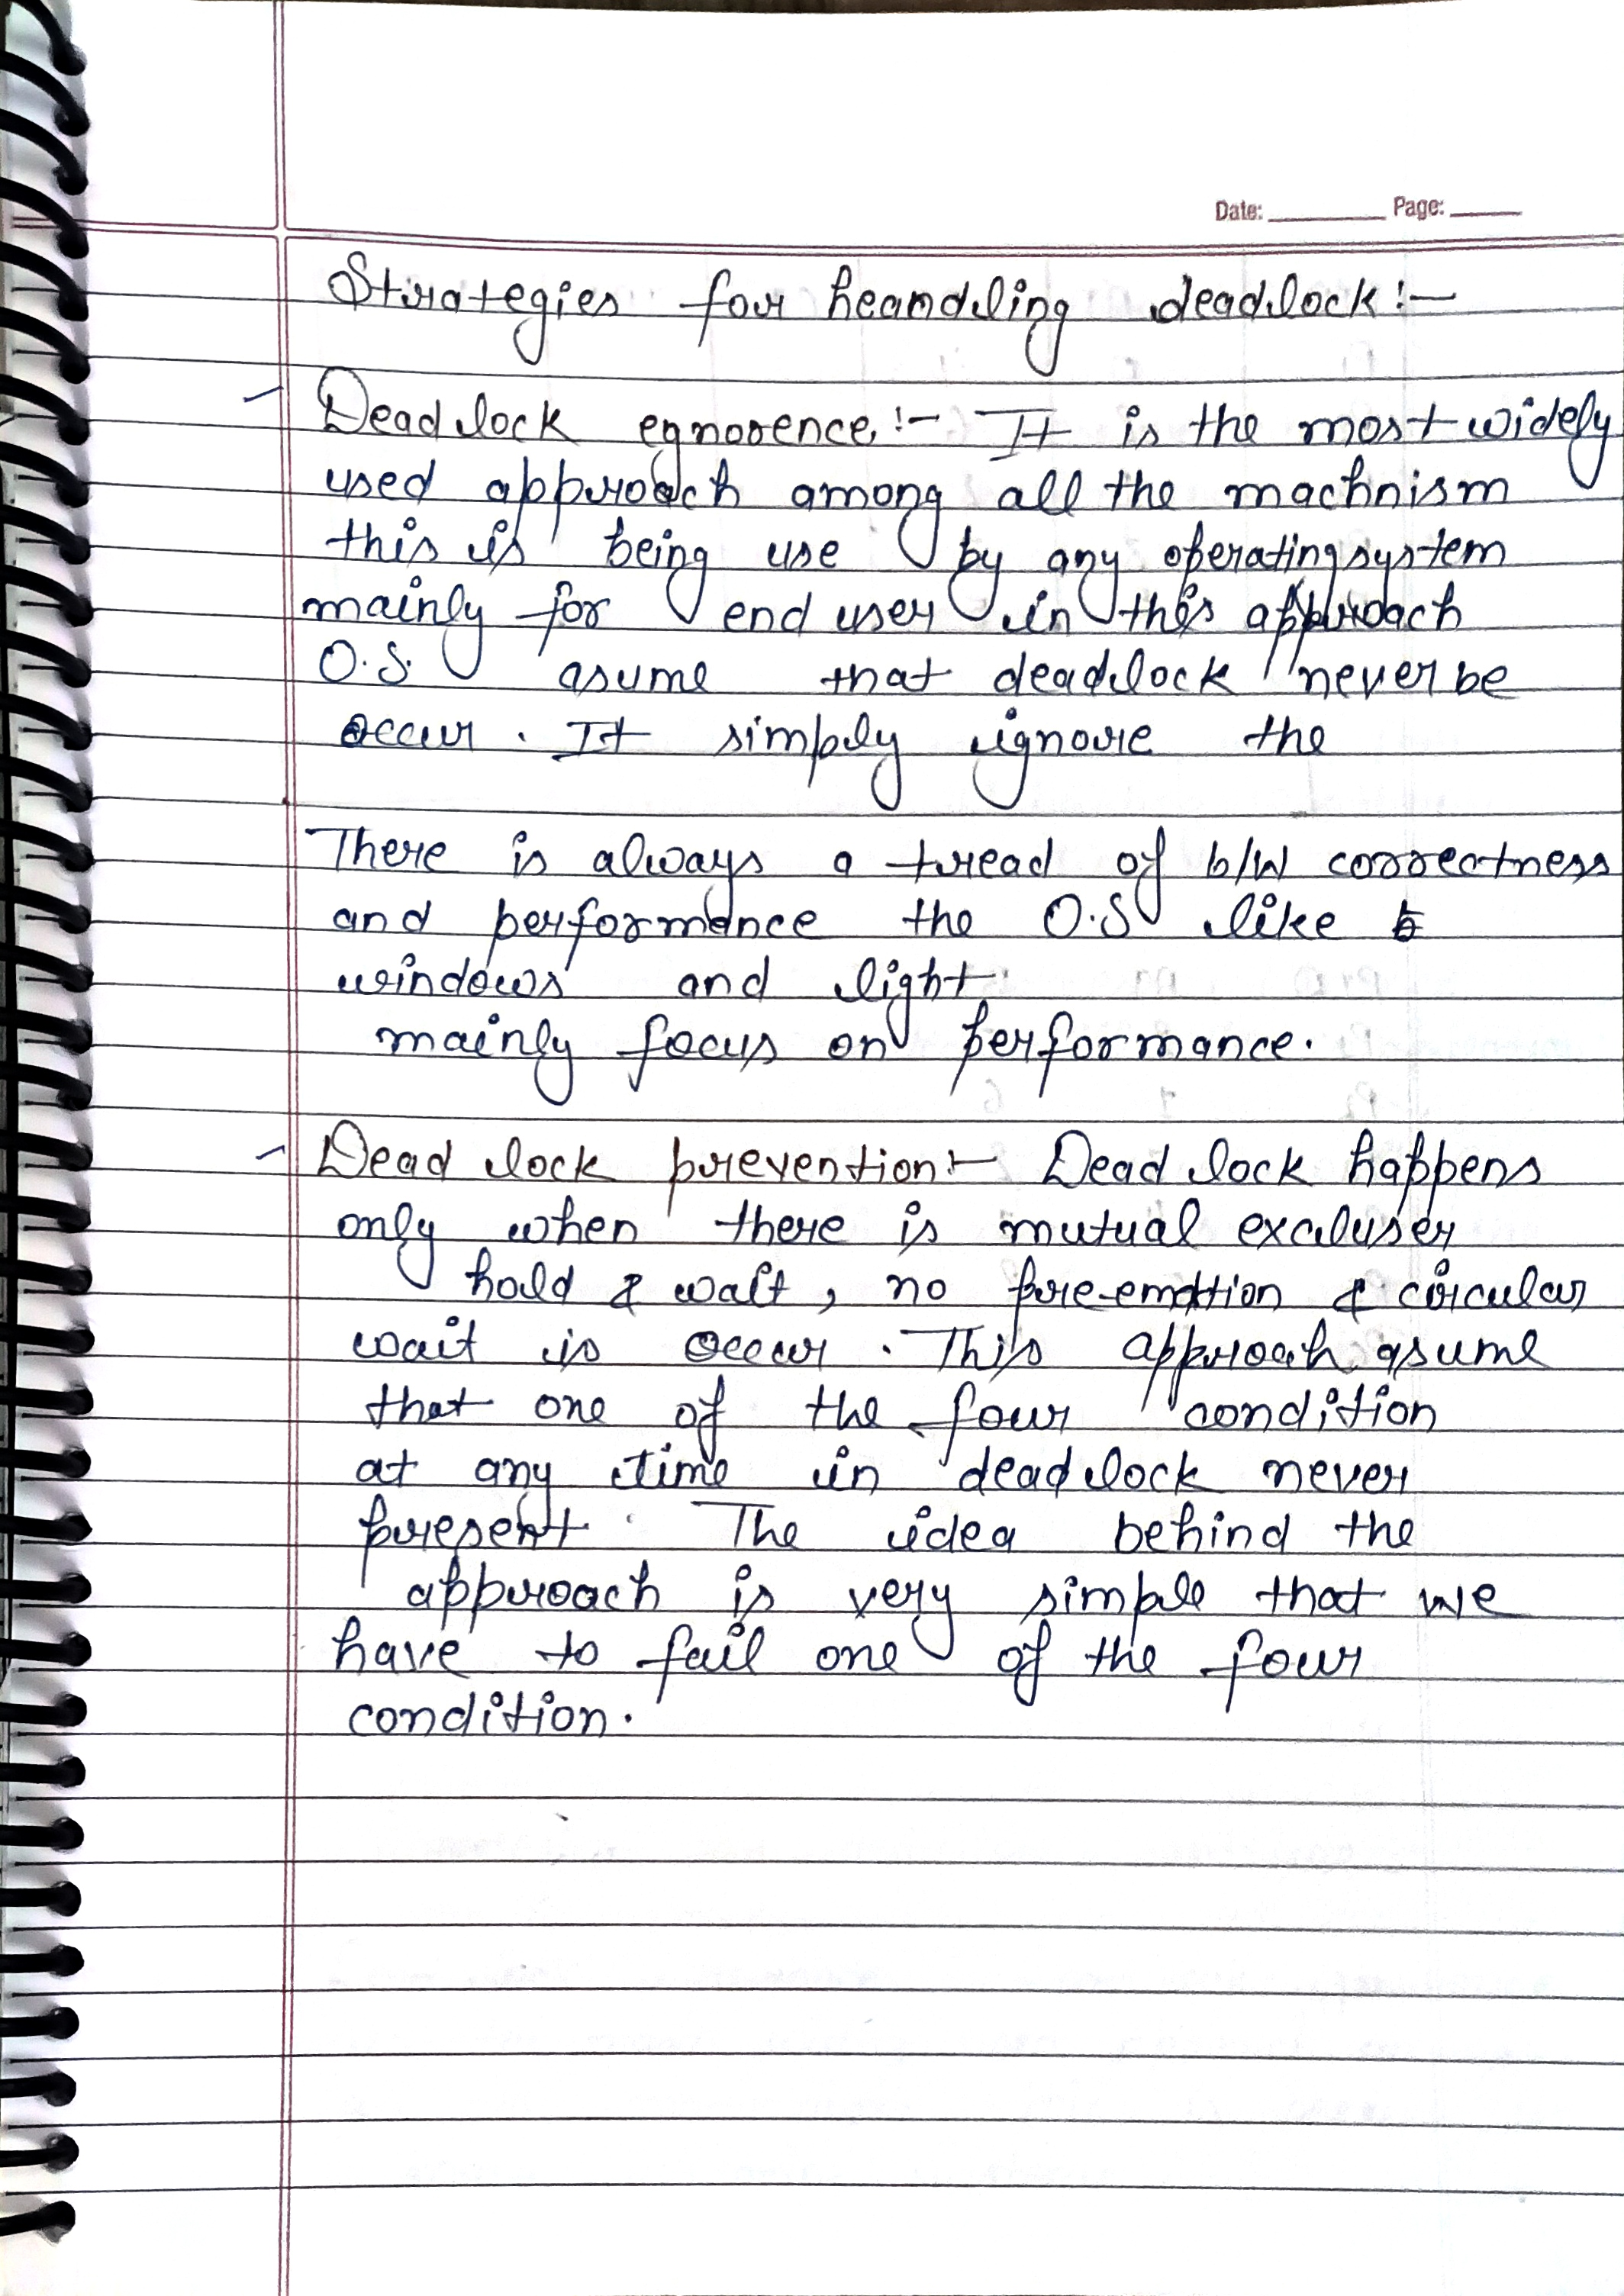 Date: Page:
Strategies for heandling deadlock:-
Deadlock egnorence:- It is the most widely
used approach among all the machnism
this is being use by any operating system
mainly for end user in this approach
O.S. asume that deadlock never be
occur. It simply ignore the
There is always a tread of b/w correctness
and performance the O.S like
windows and light
mainly focus on performance.
Dead lock prevention:- Dead lock happens
only when there is mutual excluser
hold & wait, no pre-emotion & circular
wait is occur. This approah asume
that one of the four condition
at any time in deadlock never
present. The idea behind the
approach is very simple that we
have to fail one of the four
condition.